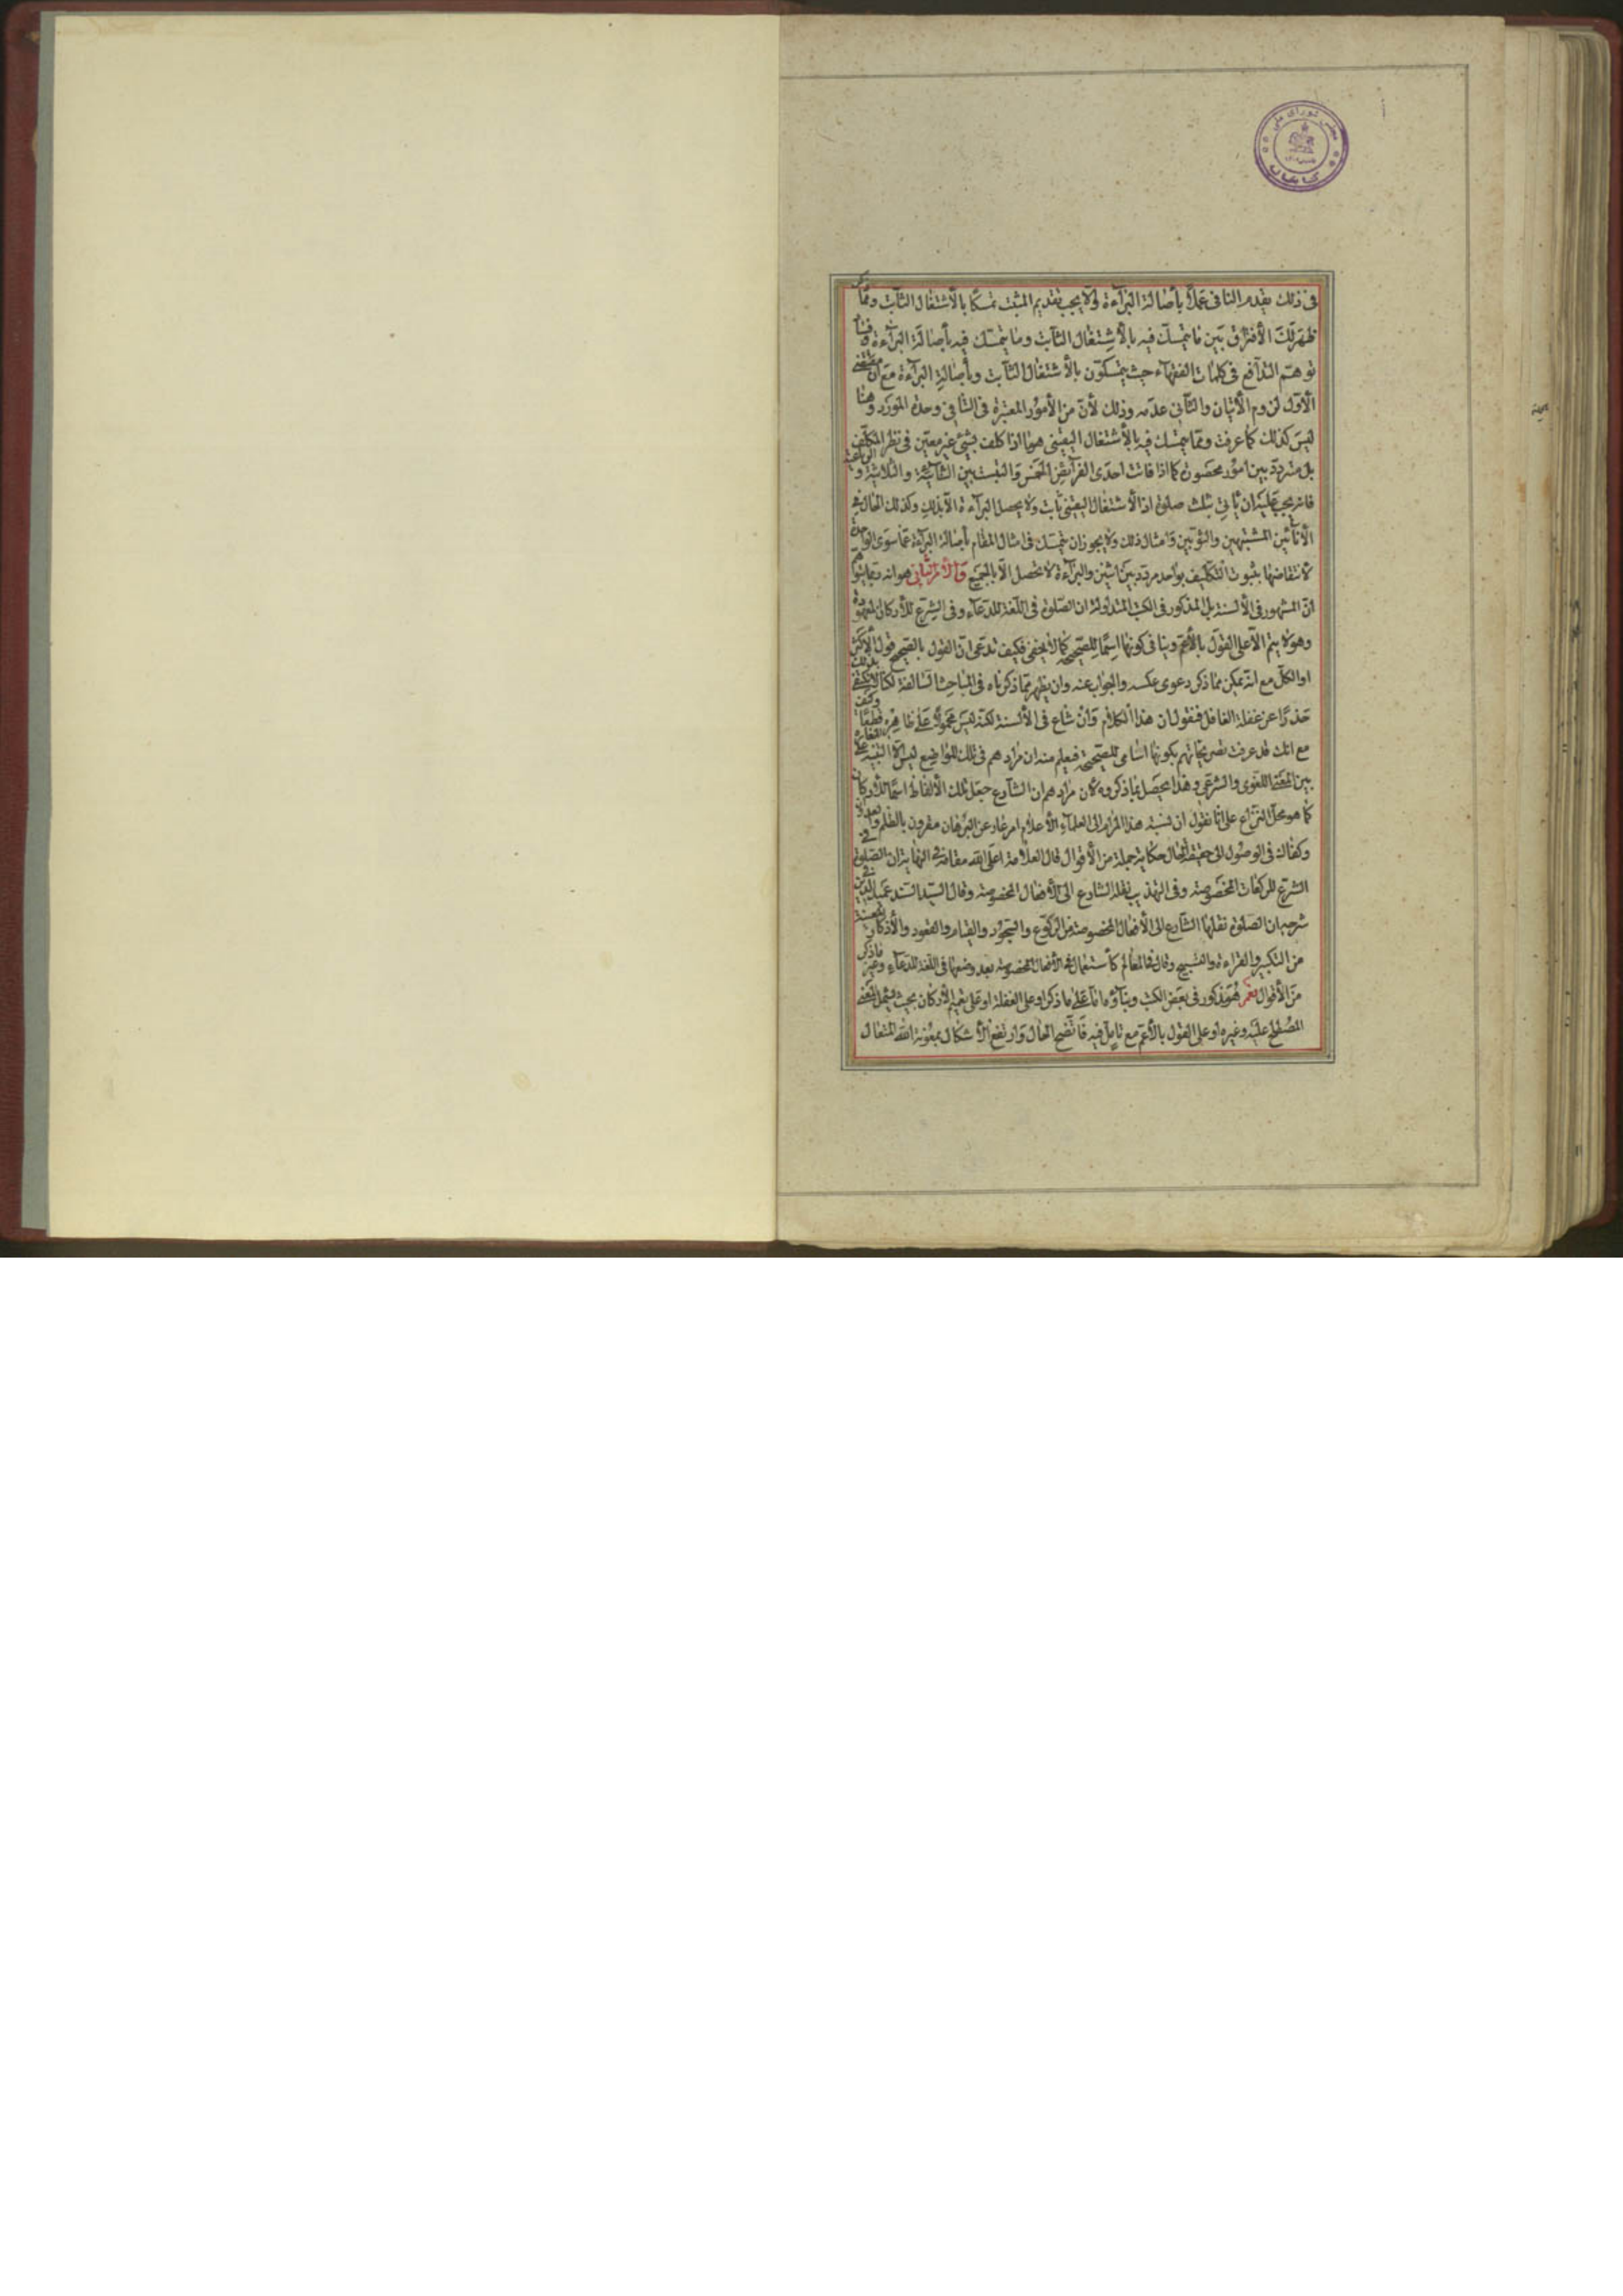 مجلس شورای ملی
کتابخانه
فی ذلك یقدم النافی عملا بأصالة البرآءة ولا یجب تقدیم المثبت تمسکا بالأشتغال الثآبت ومما
ظهر لك الأفتراق بین ما یتمسك فیه بالأشتغال الثآبت وما یتمسك فیه بأصالة البرآءة
توهم التدآفع فی کلمات الفقهآء حیث یتمسکون بالأشتغال الثآبت وبأصالة البرآءة مع أن مقتضی
الأول لزوم الأتیان والثآنی عدمه وذلك لأن من الأمور المعتبرة فی التنافی وحدة المورد وهنا
لیس کذلك کما عرفت ومما یتمسك فیه بالأشتغال الیقینی هو ما اذا کلف بشیئ غیر معین فی نظر المکلف
بل متردد بین امور محصورة کما اذا فاتت احدی الفرآئض الخمس والتبست بین الثنآئیة والثلاثیة والرباعیة
فانه یجب علیه ان یأتی بثلث صلوة اذ الأشتغال الیقینی ثآبت ولا یحصل البرآءة الا بذلك وکذلك الحال فی
الأنآئین المشتبهین والثوبین وامثال ذلك ولا یجوز ان یتمسك فی امثال المقام بأصالة البرآءة عما سوی الواحد
لأنتقاضها بثبوت التکلیف بواحد مردد بین اثنین والبرآءة لا تحصل الا بالجمیع وألأمر الثانی هو انه
ان المشهور فی الألسنة بل المذکور فی الکتب المتداولة ان الصلوة فی اللغة للدعآء وفی الشرع للأرکان المعهودة
وهو لا یتم الا علی القول بالأعم وینافی کونها اسما للصحیحة کما لا یخفی فکیف تدعی ان القول بالصحیح قول الأکثر
او الکل مع انه یمکن مما ذکر دعوی عکسه والجواب عنه وان یظهر مما ذکرناه فی المباحث السالفة لکنا لا نکتفی بذلك
حذرا عن غفلة الغافل فنقول ان هذا الکلام وان شاع فی الألسنة لکنه لیس محمولا علی ظاهره قطعا وکیف
مع انك قد عرفت تصریحاتهم بکونها اسامی للصحیحة فیعلم منه ان مرادهم فی تلك المواضع لیس الا التنبیه علی المغایرة
بین المعنی اللغوی والشرعی وهذا یحصل بما ذکروه لا ان مرادهم ان الشآرع جعل تلك الألفاظ اسما للأرکان
کما هو محل النزاع علی انا نقول ان نسبة هذا المرام الی العلمآء الأعلام امر عار عن البرهان مقرون بالظلم والعدوان
وکفاك فی الوصول الی حقیقة الحال حکایة جملة من الأقوال قال العلامة اعلی الله مقامه فی النهایة ان الصلوة فی
الشرع للرکعات المخصوصة وفی التهذیب نقله الشارع الی الأفعال المخصوصة وقال السید السند عمید الدین فی
شرحه ان الصلوة نقلها الشآرع الی الأفعال المخصوصة من الرکوع والسجود والقیام والقعود والأذکار
من التکبیر والقراءة والتسبیح وقال فی المعالم کأستعمالها فی الأفعال المخصوصة بعد وضعها فی اللغة للدعآء وغیر ما ذکر
من الأقوال نعم هو مذکور فی بعض الکتب وبنآؤه اما علی ما ذکر او علی الغفلة او علی تعمیم الأرکان بحیث یشمل المعنی
المصطلح علیه وغیره او علی القول بالأعم مع تأمل فیه فاتضح الحال وارتفع الأشکال بمعونة الله المتعال